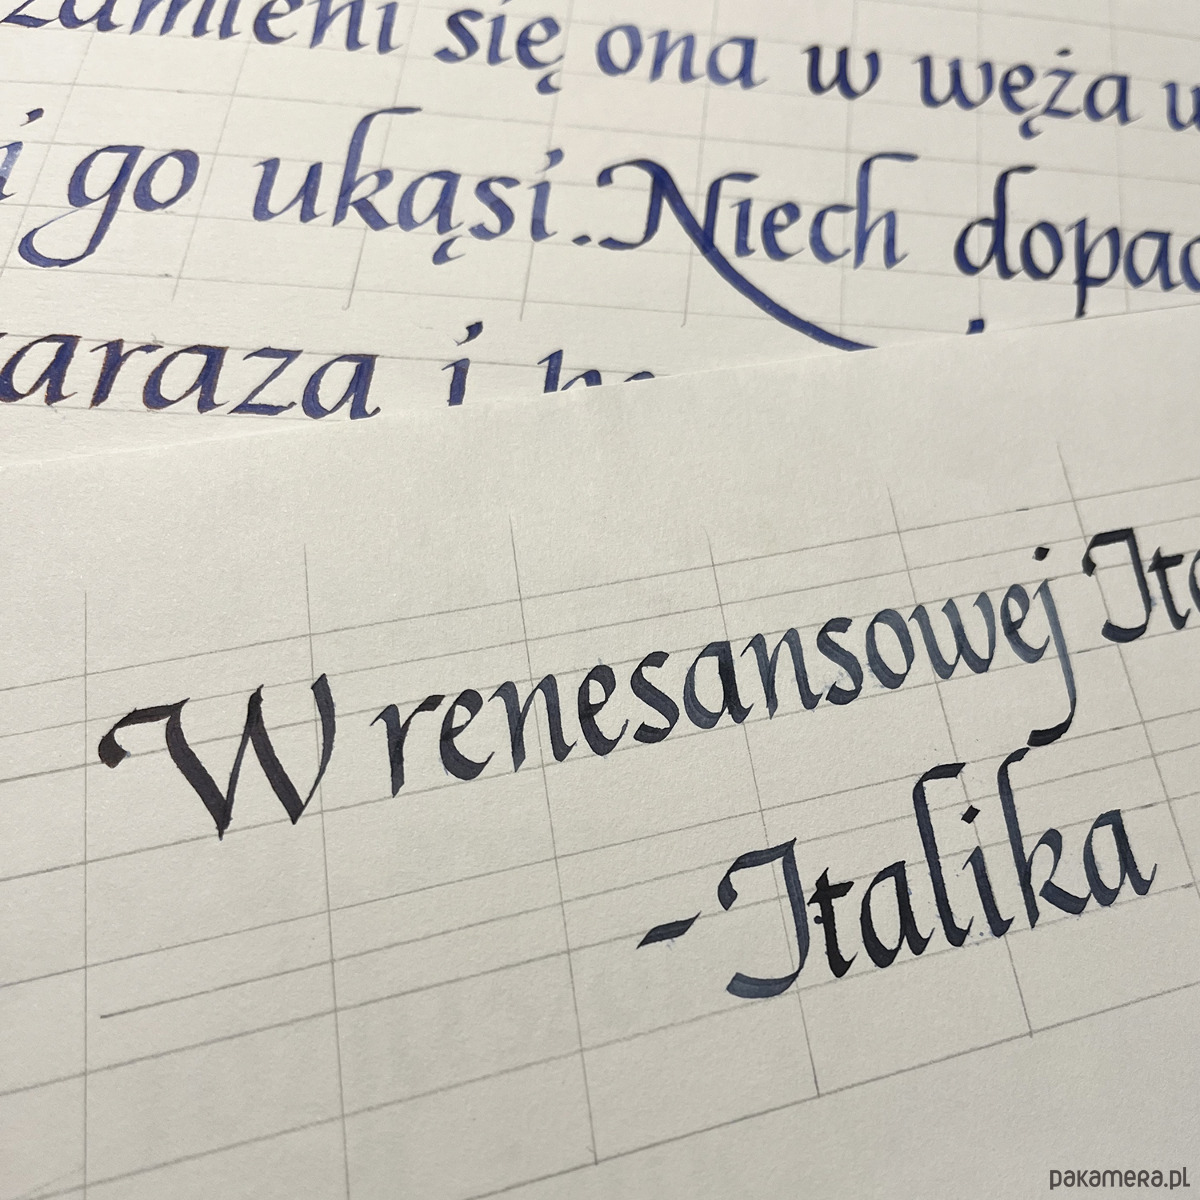 zamieni się ona w węża
i go ukąsi. Niech dopad
araza i
W renesansowej Ita
- Italika
pakamera.pl